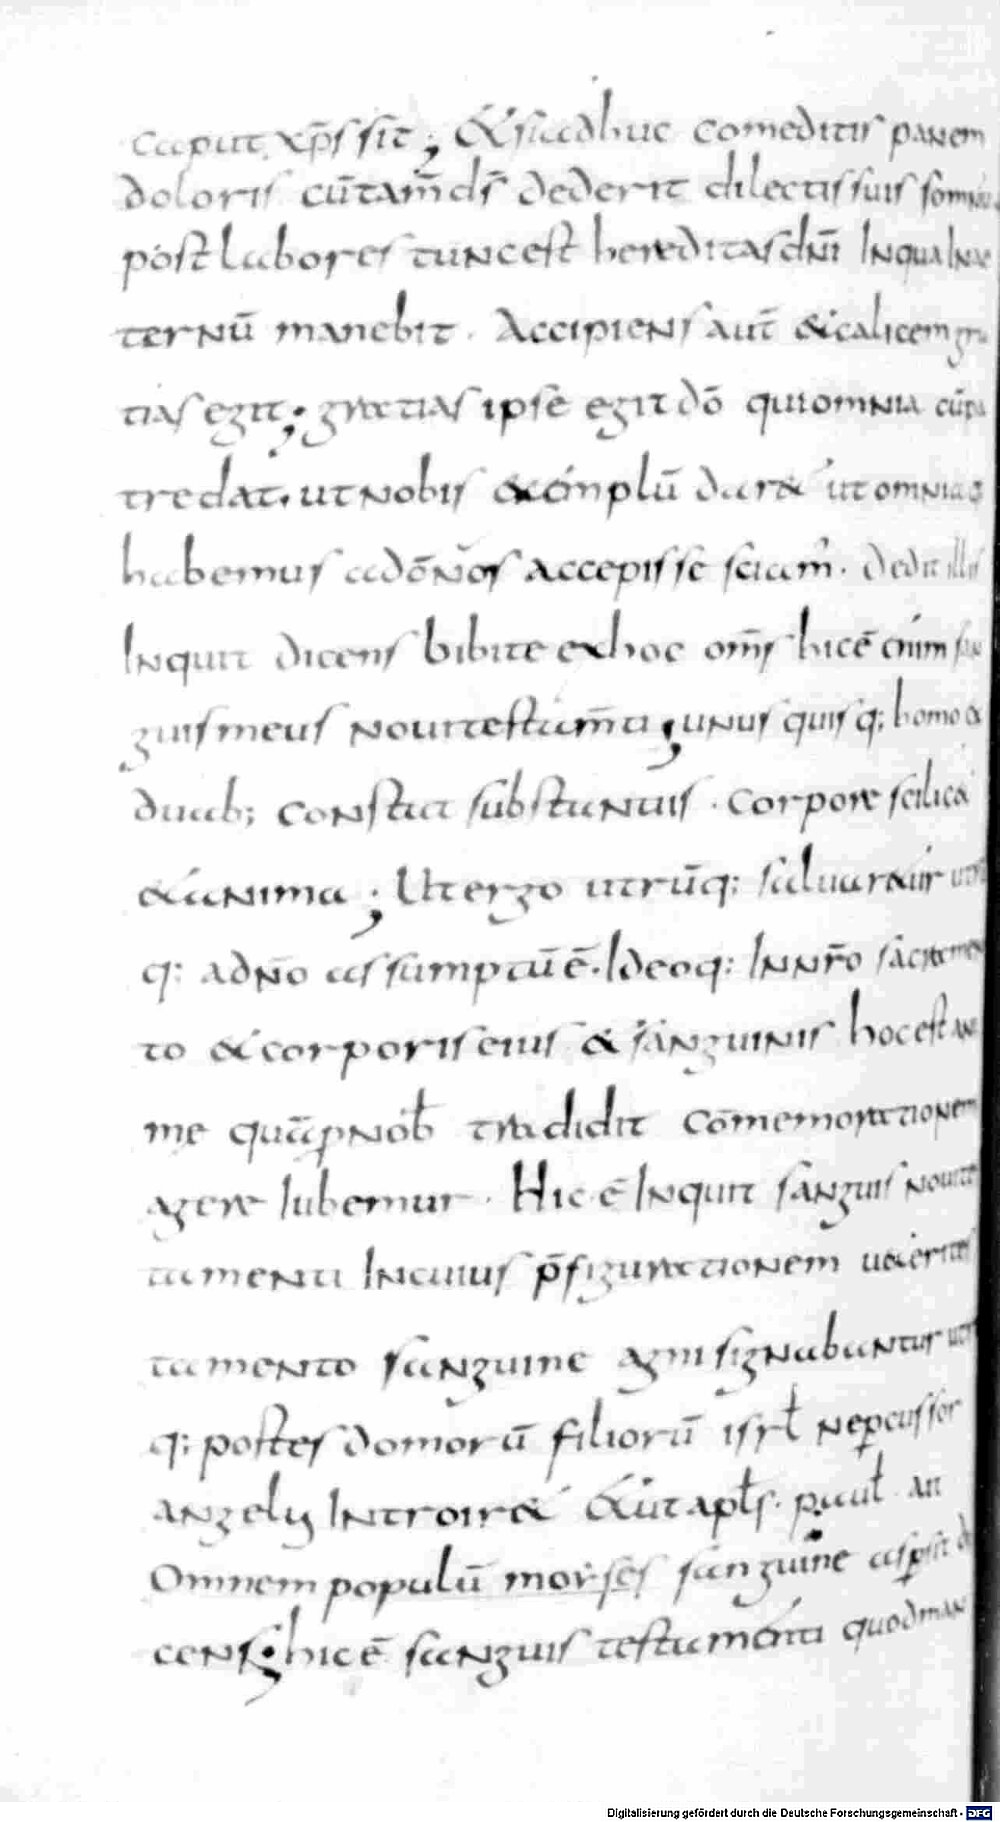 caput xp̄s sit; & si adhuc comeditis panem
doloris cū tam̄ dſ̄ dederit dilectis suis somnū
post labores tunc est hereditas dn̄i In qua In ae
ternū manebit. Accipiens aut̄ & calicem gra
tias egit; gratias ipse egit dō qui omnia cū pa
tre dat. ut nobis exemplū dar& ut omnia q̄
habemus a dō nos accepisse sciam̄. dedit illis
Inquit dicens bibite ex hoc om̄s hic ē enim san
guis meus noui testam̄ti; unus quisq; homo ex
duab; constat substantiis. corpore scilic&
& anima; Ut ergo utrūq; saluar&ur utrū
q; ad nr̄o assumptū ē. Ideoq; In nr̄o sacramen
to & corporis eius & sanguinis hoc est ani
mę quā p nob̄ tradidit cōmemorationem
agere Iubemur. Hic ē Inquit sanguis noui tes
tamenti In cuius p̄figurationem ueteri tes
tamento sanguine agni signabantur utri
q; postes domorū filiorū isrl̄ ne pcussor
angelus Introir& & ut apl̄s. paul̄. ait
Omnem populū morses sanguine aspsit di
cens; hic ē sanguis testamenti quod man